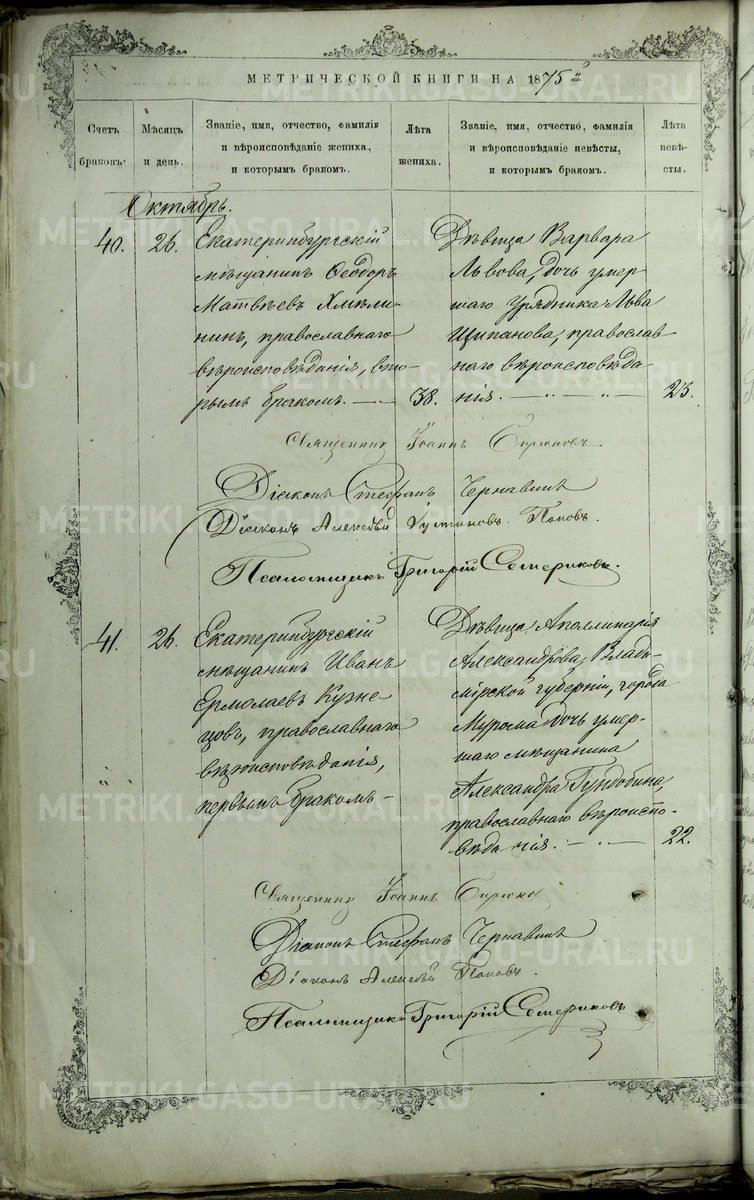 МЕТРИЧЕСКОЙ КНИГИ НА 1875й
Счетъ браковъ.
Мѣсяцъ и день.
Званіе, имя, отчество, фамилія и вѣроисповѣданіе жениха, и которымъ бракомъ.
Лѣта жениха.
Званіе, имя, отчество, фамилія и вѣроисповѣданіе невѣсты, и которымъ бракомъ.
Лѣта невѣсты.
Октябрь.
40. 26.
Екатеринбургскій
мѣщанинъ Ѳеодоръ
Матвѣевъ Хмѣли-
нинъ, православнаго
вѣроисповѣданія, вто-
рымъ бракомъ. — 38.
Дѣвица Варвара
Львова, дочь умер-
шаго урядника Льва
Щипанова, православ
наго вѣроисповѣда-
нія. — „ — „ — 23.
Священникъ Іоаннъ Бирюковъ
Діаконъ Стефанъ Чернавинъ
Діаконъ Алексѣй Поповъ.
Псаломщикъ Григорій Семериковъ.
41. 26.
Екатеринбургскій
мѣщанинъ Иванъ
Ермолаевъ Кузне-
цовъ, православнаго
вѣроисповѣданія,
первымъ бракомъ —
Дѣвица Аполлинарія
Александрова, Влади-
мірской губерніи, города
Мурома дочь умер-
шаго мѣщанина
Александра Гундобина,
православнаго вѣроиспо-
вѣданія. — „ — 22.
Священникъ Іоаннъ Бирюков
Діаконъ Стефанъ Чернавинъ
Діаконъ Алексѣй Поповъ.
Псаломщикъ Григорій Семериковъ
METRIKI.GASO-URAL.RU